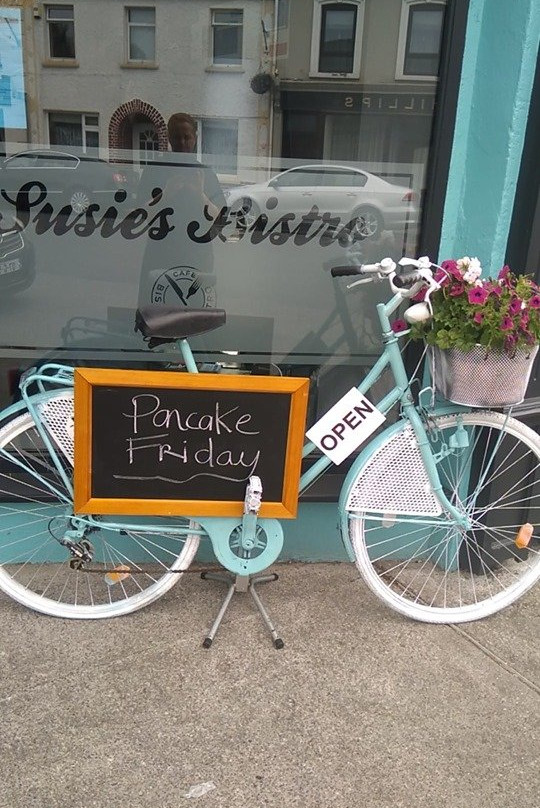 Susie's Bistro
CAFE
BIS
Pancake
Friday
OPEN